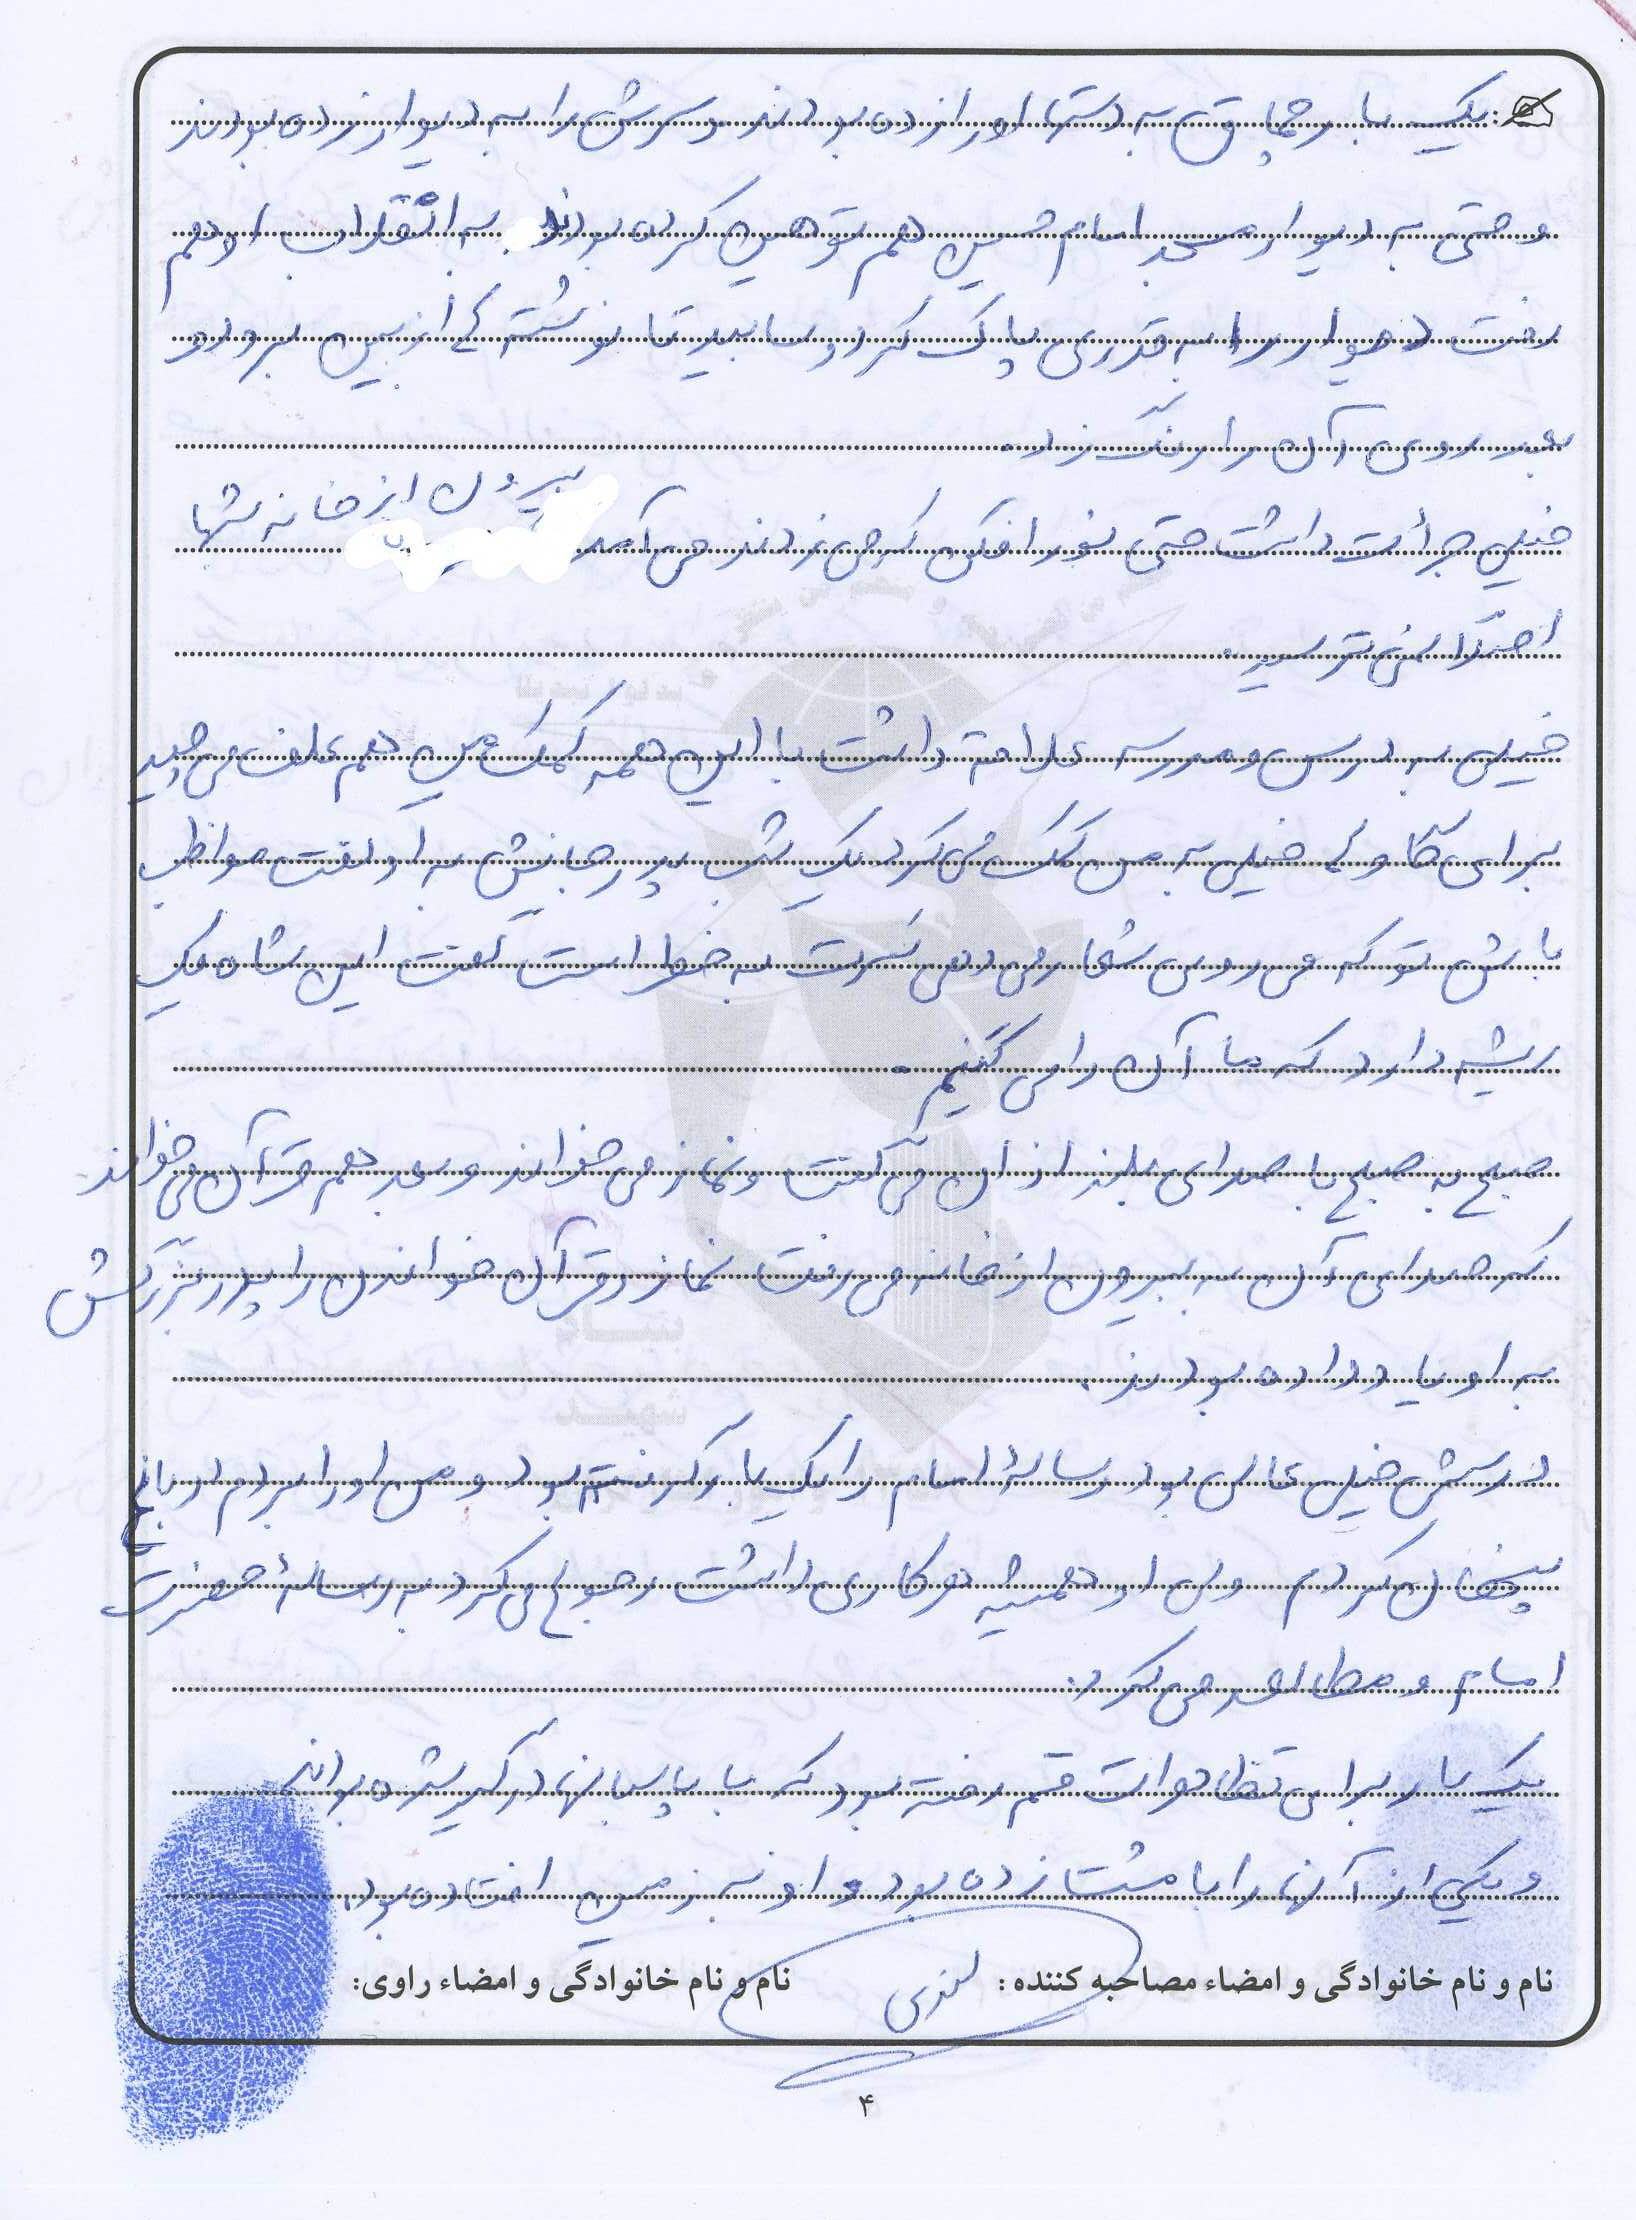 یک بار چماق به دستها او را زده بودند و سرش را به دیوار زده بودند
و حتی به دیوار مسجد امام حسین هم توهین کرده بودند به انقلاب او هم
رفت دیوار را به قدری پاک کرد و سابید تا نوشته ها از بین برود و
بعد روی آن را رنگ زد.
خیلی جرأت داشت حتی نورافکن که می زدند می آمد بیرون از خانه شبها
اصلاً نمی ترسید.
خیلی به درس و مدرسه علاقه داشت با این همه کمک من هم علف می چید
برای گاو ها خیلی به من کمک می کرد یک شب پدر جانش به او گفت مواظب
باش تو که می روی شعار می دهی سرت به خطر است گفت این شاه یک
ریشه دارد که ما آن را می کنیم.
صبح به صبح با صدای بلند اذان می گفت و نماز می خواند و بعد هم قرآن می خواند
که صدای آن به بیرون از خانه می رفت نماز و قرآن خواندن را پدربزرگش
به او یاد داده بودند.
درسش خیلی عالی بود رسالهٔ امام را یک بار گرفته بود و من او را بردم در باغ
پنهان کردم ولی او همیشه هر کاری داشت رجوع می کرد به رسالهٔ حضرت
امام و مطالعه می کرد.
یک بار برای تظاهرات قم رفته بود که با پاسبانها درگیر شده بودند
و یکی از آنها را با مشت زده بود و او به زمین افتاده بود.
نام و نام خانوادگی و امضاء مصاحبه کننده: نام و نام خانوادگی و امضاء راوی:
۴